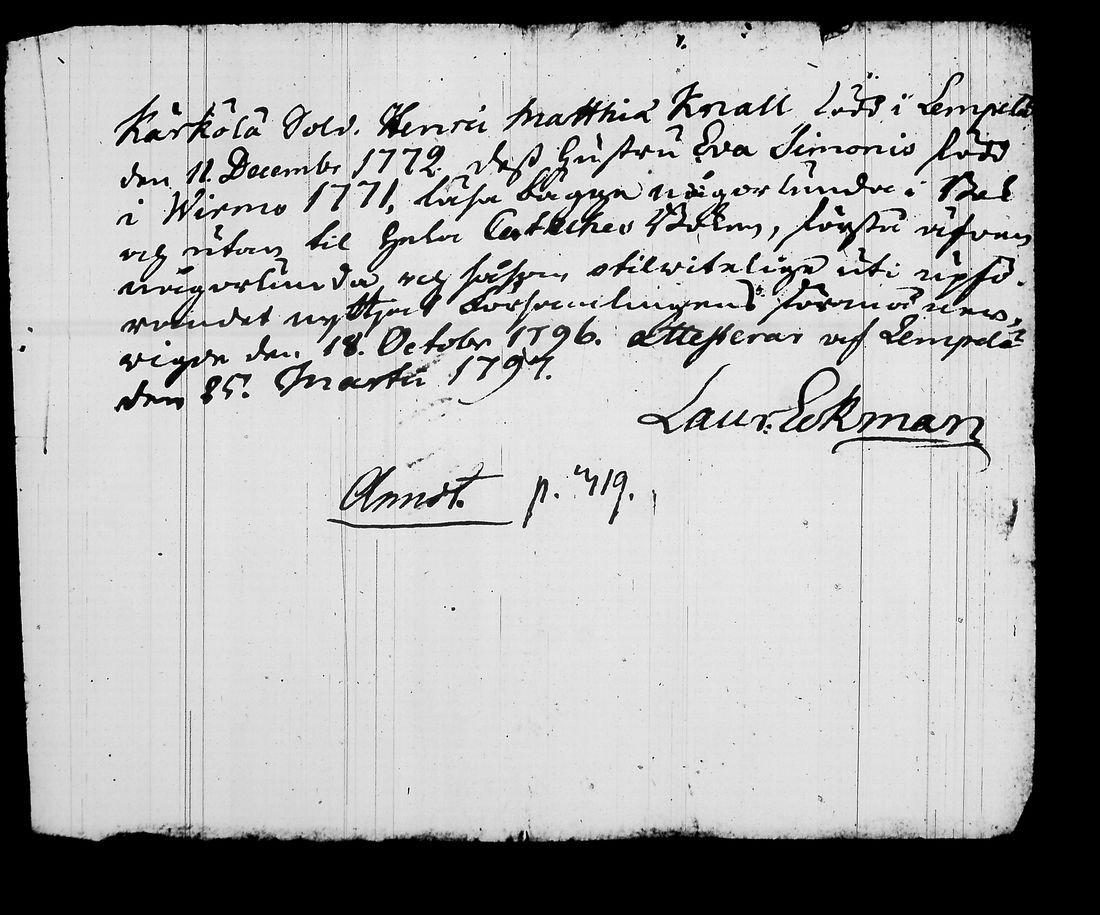 Kärkölä Sold. Henric Matthiæ Knall född i Lempälä
den 11. Decembr 1772. Dess Hustru Eva Simonis född
i Wirmo 1771, läsa bägge någorlunda i Bok
och utan til hela Catheches Boken, förstå äfven
någorlunda, och såsom stilwitelige uti upfö-
randet nyttjat Församlingens förmåner,
vigde den 18. Octobr 1796. attesterar af Lempälä
den 25. Martii 1797.
Laur. Eckman
Annot. p. 419.